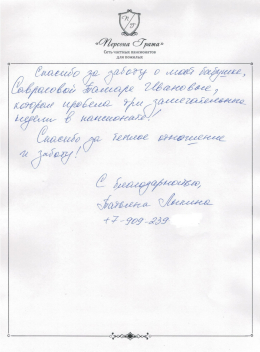 «Персона Грата»
Сеть частных пансионатов
для пожилых
Спасибо за заботу о моей бабушке,
Саврасовой Тамаре Ивановне,
которая провела три замечательные
недели в пансионате!
Спасибо за теплое отношение
и заботу!
С благодарностью,
Татьяна
+7-909-239